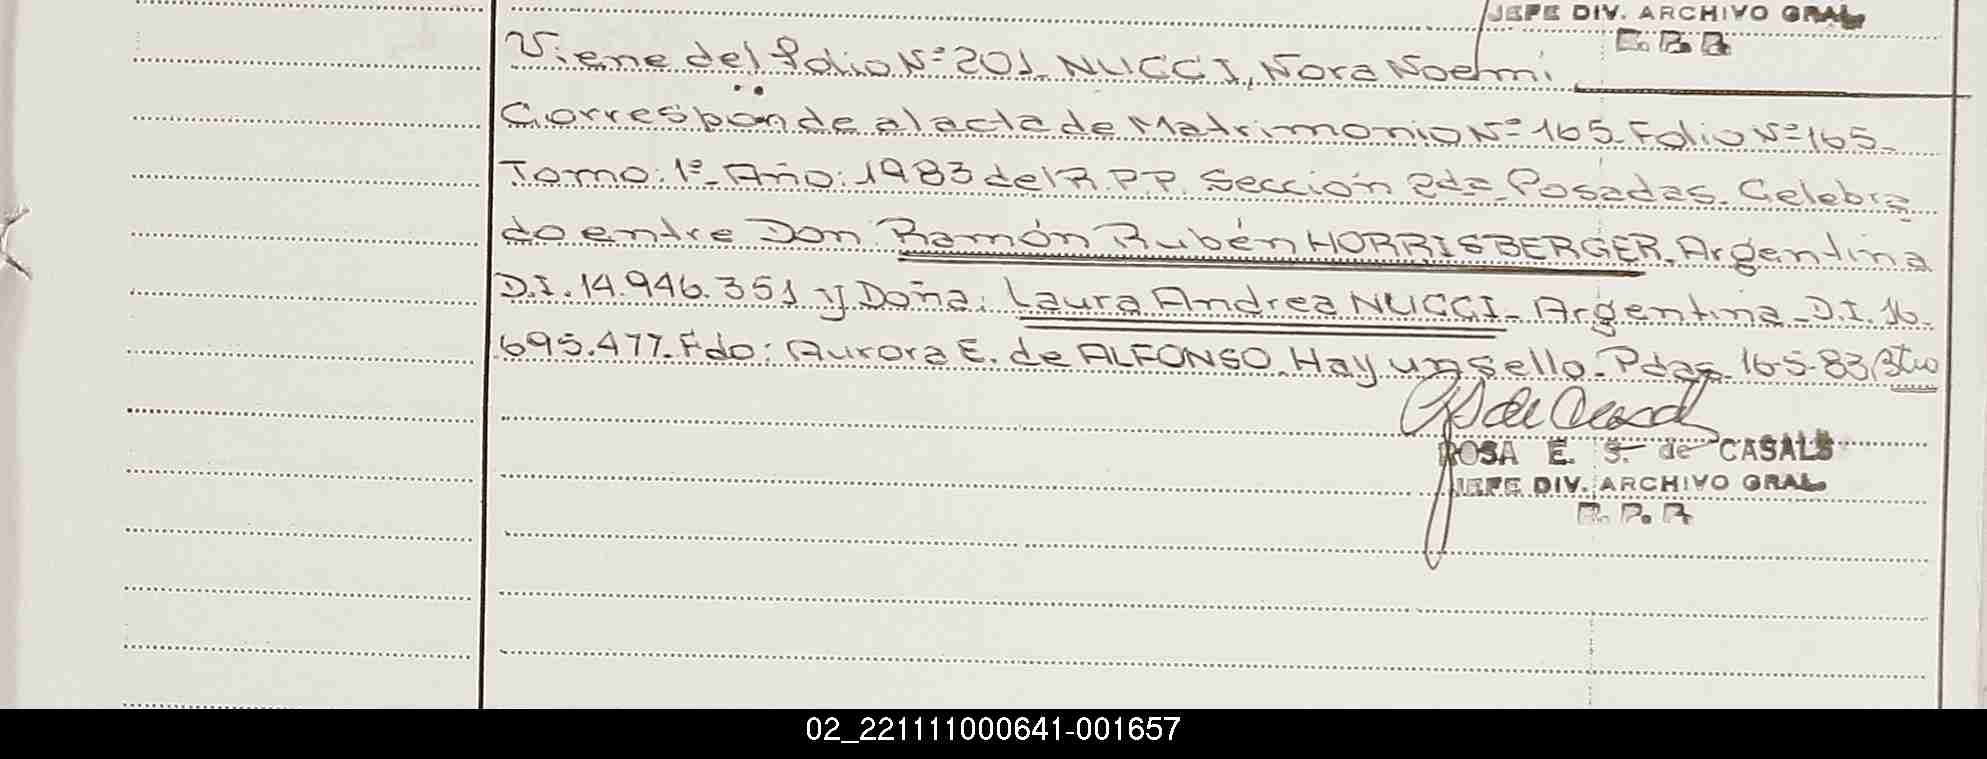 JEFE DIV. ARCHIVO GRAL
R. P. P.
Viene del folio Nº 201. NUCCI, Nora Noemi.
Corresponde al acta de Matrimonio Nº 165. Folio Nº 165.
Tomo: 1º. Año: 1983 del R.P.P. Sección 2da. Posadas. Celebra
do entre Don: Ramón Rubén HORRISBERGER. Argentina
D.I. 14.946.351 y Doña: Laura Andrea NUCCI. Argentina. D.I. 16.
695.477. Fdo: Aurora E. de ALFONSO. Hay un sello. Pdas. 16-5-83
ROSA E. S. de CASALS
JEFE DIV. ARCHIVO GRAL
R. P. P.
02_221111000641-001657